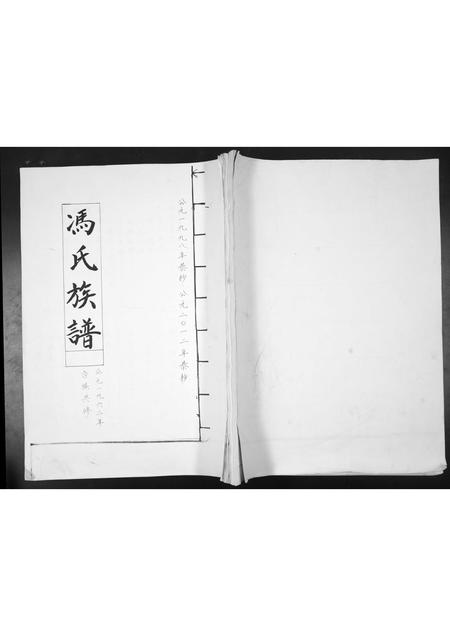 公元一九九八年恭抄 公元二〇一二年恭抄
馮氏族譜
公元一九六二年
合族共修